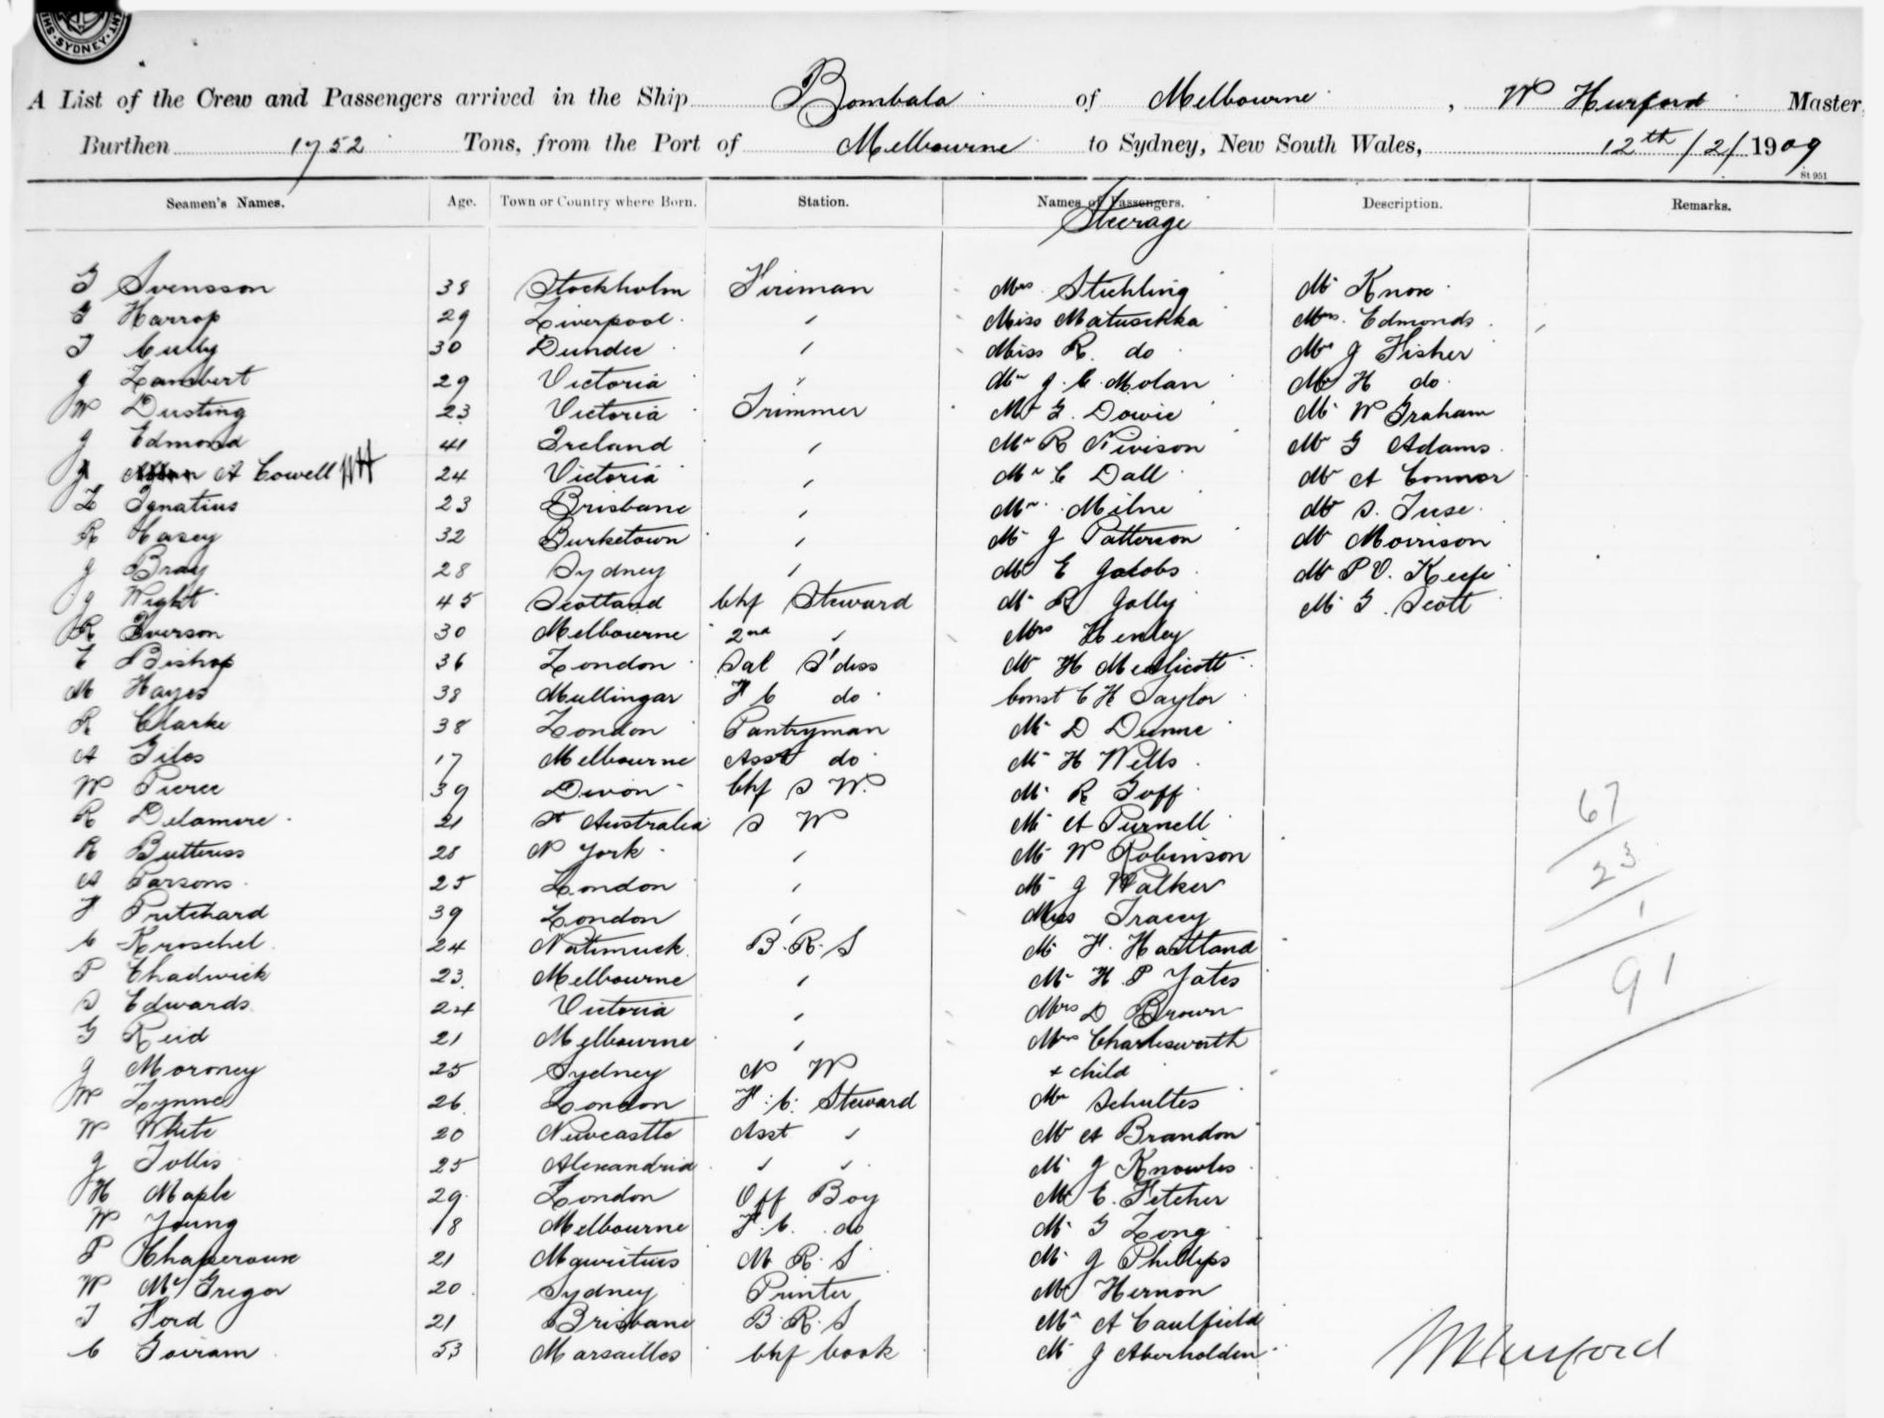 SYDNEY
A List of the Crew and Passengers arrived in the Ship Bombala of Melbourne, W Hurford Master
Burthen 1752 Tons, from the Port of Melbourne to Sydney, New South Wales, 12th/2/1909
St 951
Seamen's Names. Age. Town or Country where Born. Station. Names of Passengers. Description. Remarks.
Steerage
G Svensson 38 Stockholm Fireman Mrs Stichling Mr Knox
G Harrop 29 Liverpool " Miss Matuschka Mrs Edmonds
T Cully 30 Dundee " Miss R. do Mr J Fisher
J Lambert 29 Victoria " Mr J. C. Molan Mr H do
W Dusting 23 Victoria Trimmer Mr G. Dowie Mr W Graham
J Edmond 41 Ireland " Mr R Nivison Mr G Adams
A Cowell WH 24 Victoria " Mr C Dall Mr A Connor
L Ignatius 23 Brisbane " Mr Milne Mr S. Tuse
R Casey 32 Burketown " Mr J Patterson Mr Morrison
J Bray 28 Sydney " Mr E Jacobs Mr P V. Keefe
J Wight 45 Scotland Chf Steward Mr R Jolly Mr G. Scott
R Iverson 30 Melbourne 2nd " Mrs Henley
E Bishop 36 London Sal S'dess Mr H Medlicott
M Hayes 38 Mullingar F C do Const C H Taylor
R Clarke 38 London Pantryman Mr D Dunne
A Giles 17 Melbourne Asst do Mr H Wells
W Pierce 39 Devon Chf S W. Mr R Goff
R Delamere 21 St Australia S W Mr A Purnell
R Buttress 28 N York " Mr W Robinson
A Parsons 25 London " Mr J Walker
F Pritchard 39 London " Miss Tracey
C Kroschel 24 Natimuck B. R. S Mr F. Hartland
P Chadwick 23 Melbourne " Mr H. P Yates
S Edwards 24 Victoria " Mrs D Brown
G Reid 21 Melbourne " Mrs Charlesworth
J Moroney 25 Sydney N W + child
W Lynne 26 London F. C. Steward Mr Schultes
W White 20 Newcastle Asst " Mr A Brandon
J Tollis 25 Alexandria " " Mr J Knowles
H Maple 29 London Off Boy Mr C. Fetcher
W Young 18 Melbourne F. C. do Mr G Long
P Chaperoux 21 Mauritius M R. S Mr J Phillips
W McGregor 20 Sydney Printer Mr Hernon
T Ford 21 Brisbane B. R. S Mr A Caulfield
C Goiram 53 Marsailles Chf Cook Mr J Aberholden
67
23
1
91
W Hurford